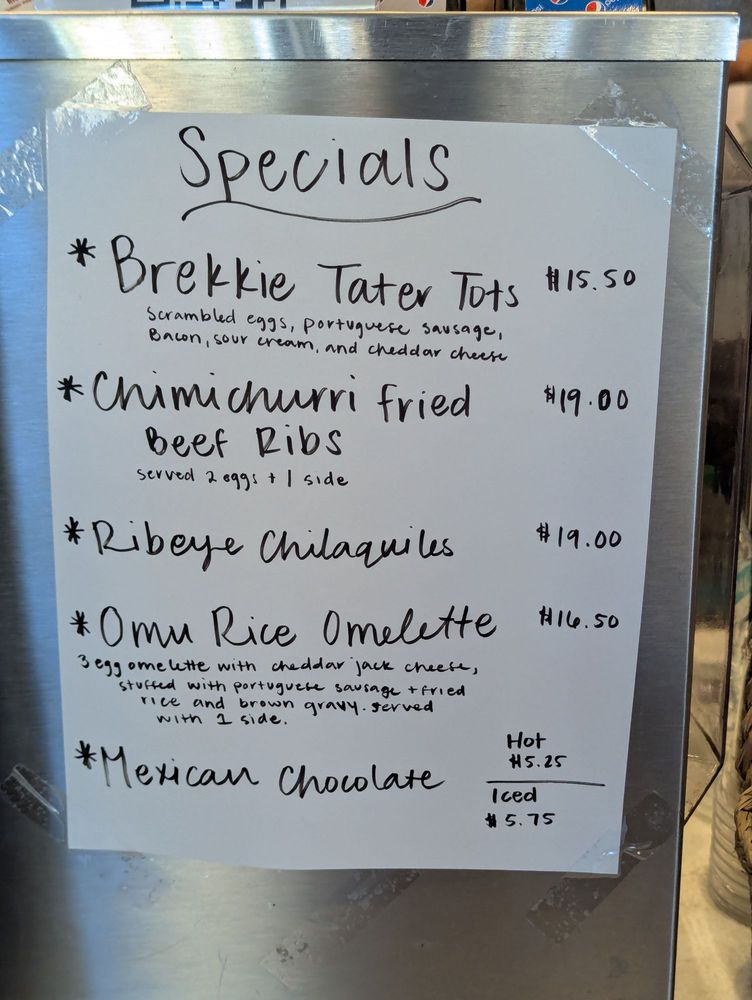 Specials
* Brekkie Tater Tots $15.50
Scrambled eggs, portuguese sausage,
Bacon, sour cream, and cheddar cheese
* Chimichurri fried $19.00
Beef Ribs
served 2 eggs + 1 side
* Ribeye Chilaquiles $19.00
* Omu Rice Omelette $16.50
3 egg omelette with cheddar jack cheese,
stuffed with portuguese sausage + fried
rice and brown gravy. served
with 1 side.
* Mexican Chocolate
Hot
$5.25
Iced
$5.75